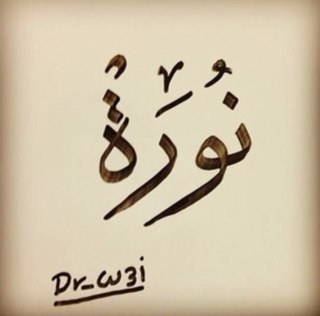 نُورَةُ
Dr_w3i